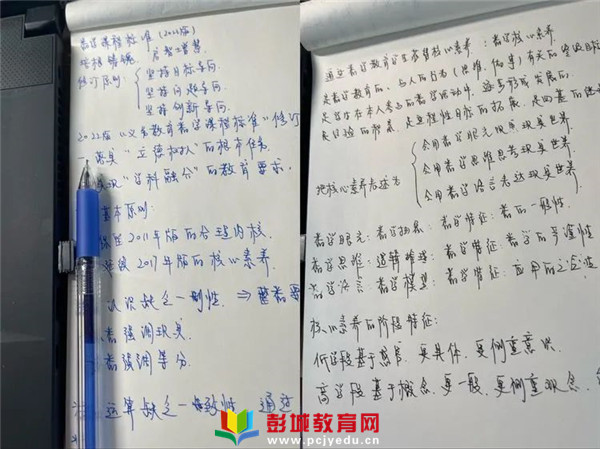 数学课程标准（2022版）
培根铸魂 启智增慧
修订原则：
坚持目标导向
坚持问题导向
坚持创新导向
2022版“义务教育数学课程标准”修订
一 落实“立德树人”的根本任务
“学科融合”的教育要求．
基本原则：
2011年版的合理内核．
2017年版的核心素养．
认识缺乏一致性 ⇒ 整数
强调现实
强调等分
运算缺乏一致性 通过
通过数学教育学生掌握核心素养：数学核心素养
是数学教育的、与人的行为（思维、做事）有关的终极目标
是学生在本人参与的数学活动中，逐步形成发展的．
是经验的积累，是过程性目标的拓展，是四基的
把核心素养表述为
会用数学眼光观察现实世界
会用数学思维思考现实世界
会用数学语言表达现实世界．
数学眼光：数学抽象：数学特征：数的一般性．
数学思维：逻辑推理：数学特征：数学的严谨性
数学语言：数学模型：数学特征：应用的广泛性
核心素养的阶段特征：
低学段基于感官，更具体，更侧重意识．
高学段基于概念，更一般，更侧重观念．
彭城教育网
www.pcjyedu.cn